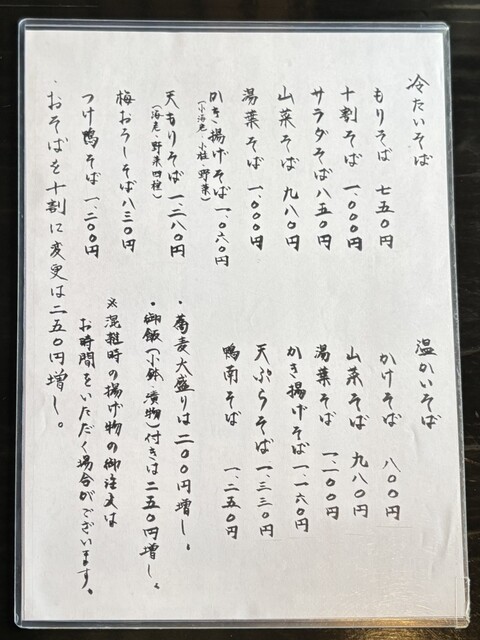 冷たいそば
もりそば 七五〇円
十割そば 一、〇〇〇円
サラダそば 八五〇円
山菜そば 九八〇円
湯葉そば 一、〇〇〇円
かき揚げそば 一、〇六〇円
(小海老、小柱、野菜)
天もりそば 一、二八〇円
(海老、野菜四種)
梅おろしそば 八三〇円
つけ鴨そば 一、二〇〇円
・おそばを十割に変更は二五〇円増し。
温かいそば
かけそば 八〇〇円
山菜そば 九八〇円
湯葉そば 一、一〇〇円
かき揚げそば 一、一六〇円
天ぷらそば 一、三三〇円
鴨南そば 一、二五〇円
・蕎麦大盛りは二〇〇円増し。
・御飯(小鉢・漬物)付きは二五〇円増し。
※混雑時の揚げ物の御注文は
お時間をいただく場合がございます。